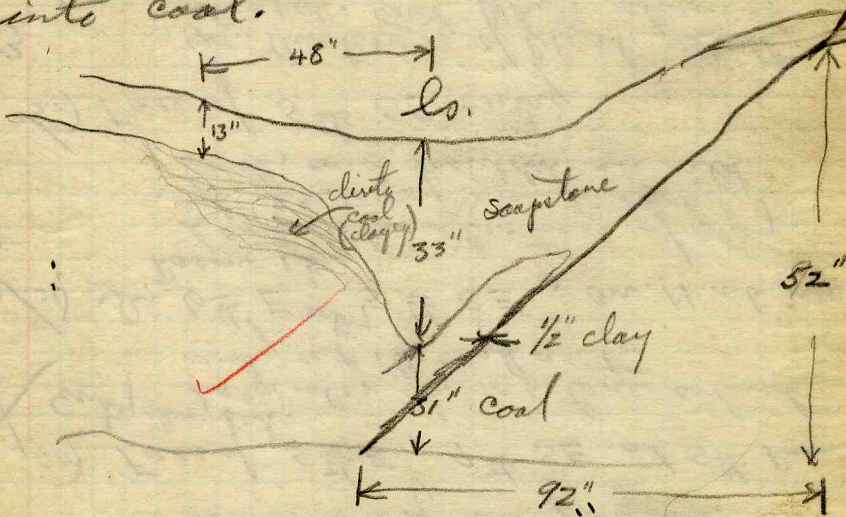 into coal.
48"
ls.
13"
dirty
coal
(clayey)
33"
soapstone
52"
1/2" clay
31" coal
92"